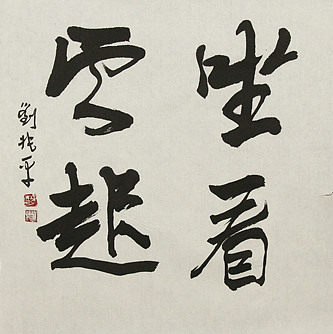 坐看
雲起
劉振平